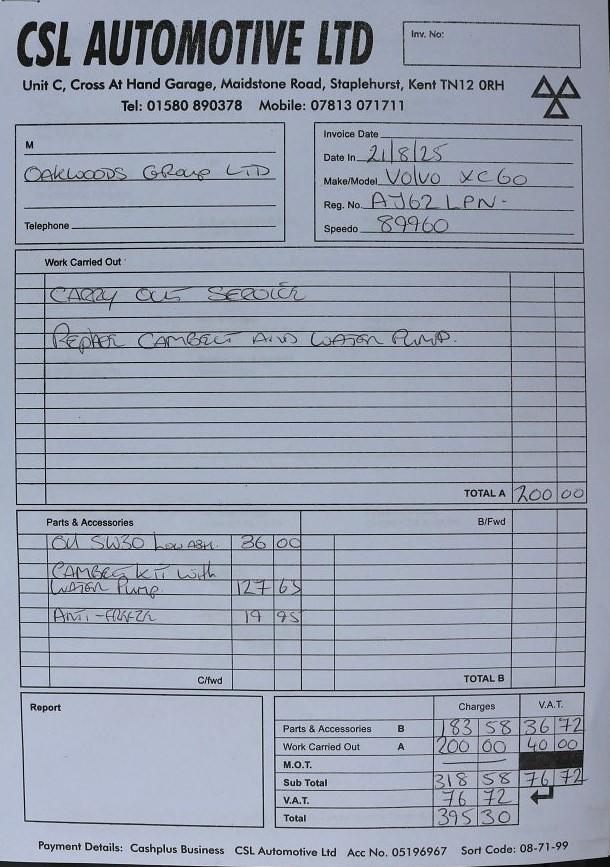 CSL AUTOMOTIVE LTD
Inv. No:
Unit C, Cross At Hand Garage, Maidstone Road, Staplehurst, Kent TN12 0RH
Tel: 01580 890378 Mobile: 07813 071711
M
OAKWOODS GROUP LTD
Telephone
Invoice Date
Date In 21/8/25
Make/Model VOLVO XC60
Reg. No. AJ62 LPN-
Speedo 89960
Work Carried Out
CARRY OUT SERVICE
REPAIR CAMBELT AND WATER PUMP.
TOTAL A 200 00
Parts & Accessories B/Fwd
OIL 5W30 LOW ASH. 36 00
CAMBELT KIT WITH
WATER PUMP. 127 63
ANTI-FREEZE 19 95
C/fwd TOTAL B
Report
Charges V.A.T.
Parts & Accessories B 183 58 36 72
Work Carried Out A 200 00 40 00
M.O.T.
Sub Total 318 58 76 72
V.A.T. 76 72
Total 395 30
Payment Details: Cashplus Business CSL Automotive Ltd Acc No. 05196967 Sort Code: 08-71-99